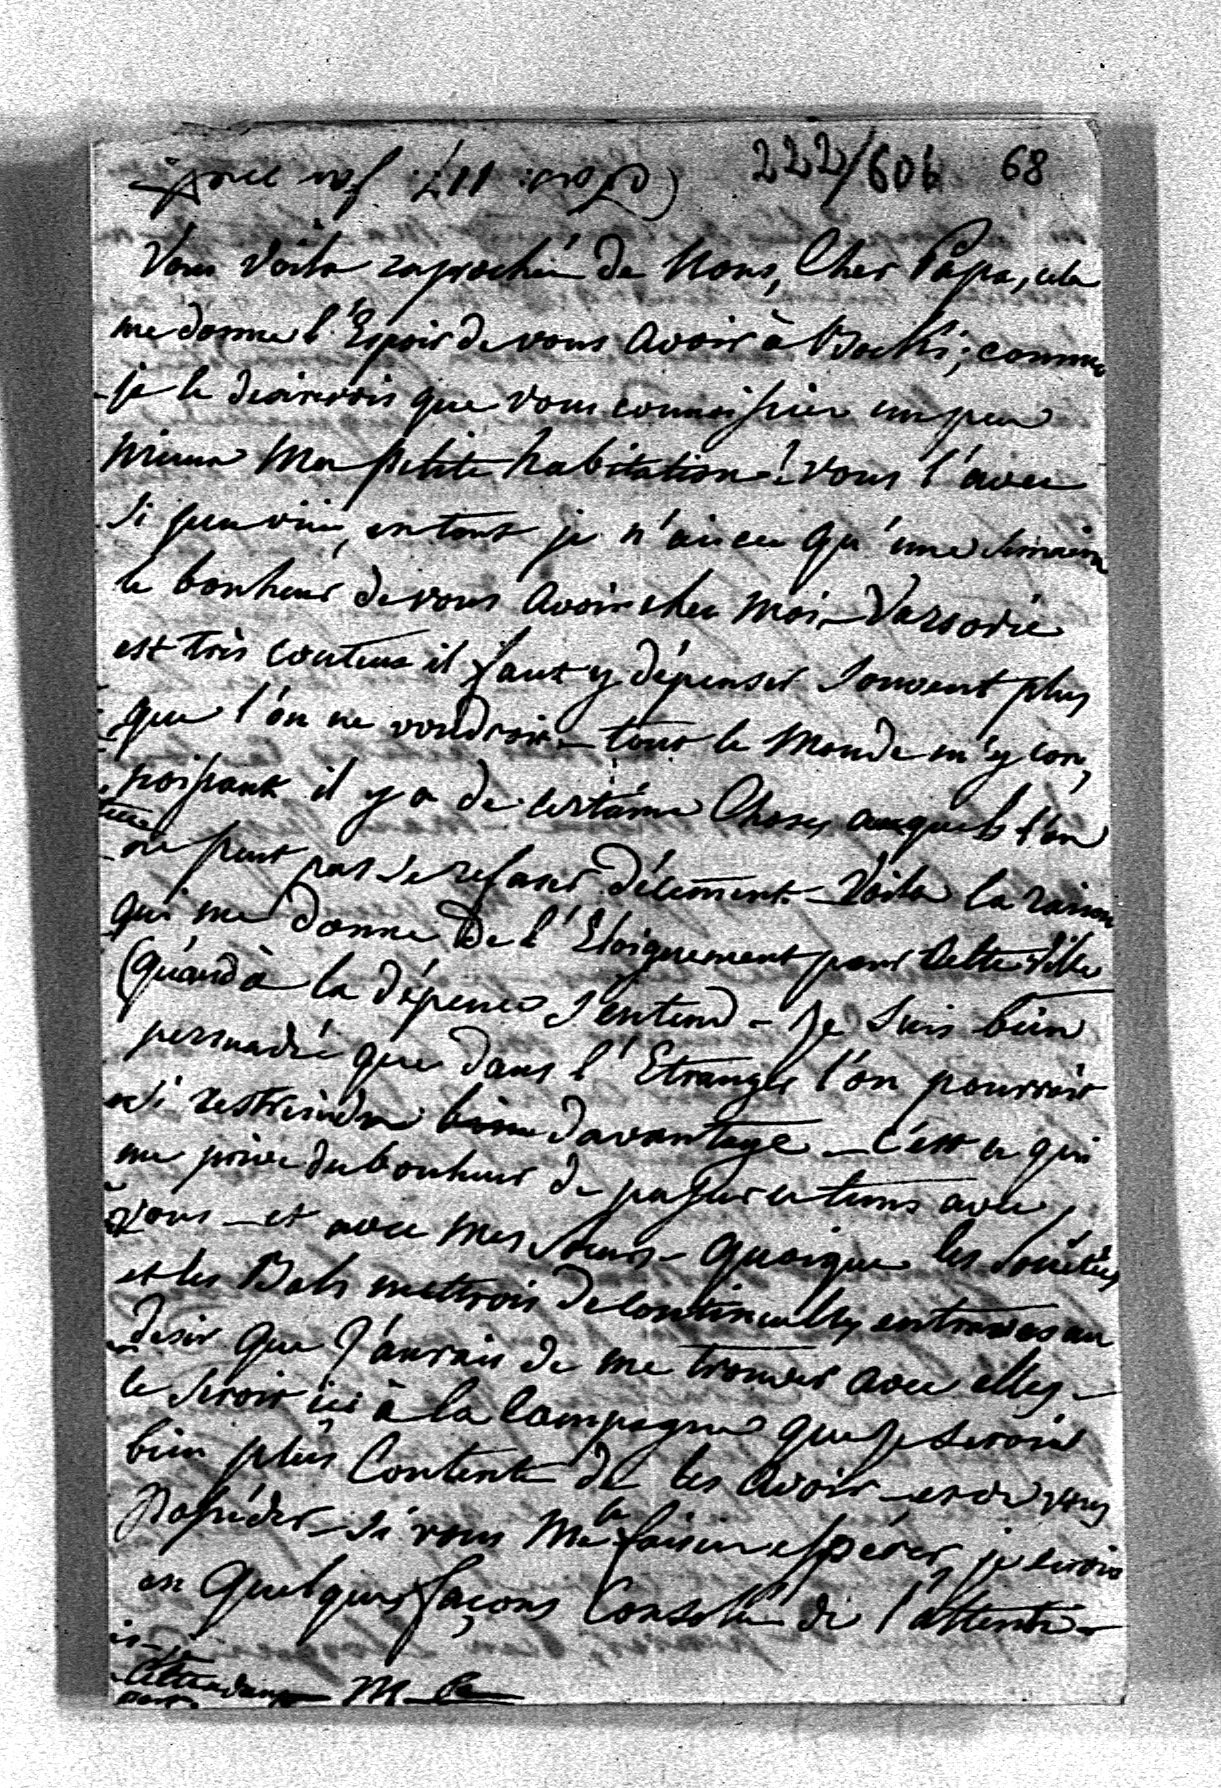 222/606 68
Vous Voila raproché de Nous, Cher Papa, cela
me donne l'Espoir de vous avoir à Bocki; comme
je le desirerois que vous connoissiez un peu
mieux Ma petite habitation! vous l'avez
si peu vüe, en tout je n'ai eu qu'une semaine
le bonheur de vous avoir chez Moi - Varsovie
est très couteux il faut y dépenser souvent plus
que l'ón ne voudroit - tout le Monde m'y con,
noissant il y a de certaine Choses auquels l'ón
ne peut pas se refuser décement - Voila la raison
qui me donne de l'Eloignement pour Cette Ville
(Quand à la dépence s'entend - Je suis bien
persuadée que dans l'Etranger l'ón pourroit
si restreindre bien davantage - c'est ce qui
me prive du bonheur de passer ce tems avec
vous - et avec Mes Soeurs - quoique les Sociétées
et les Bals mettrois de continuelles entraves au
desir que J'aurais de me trouver avec elles -
ce seroit ici à la Campagne que je serois
bien plus Contente de les avoir - et de vous
posséder - si vous me le faisiez espérer, je serois
en Quelques façons Consolée de l'attente -